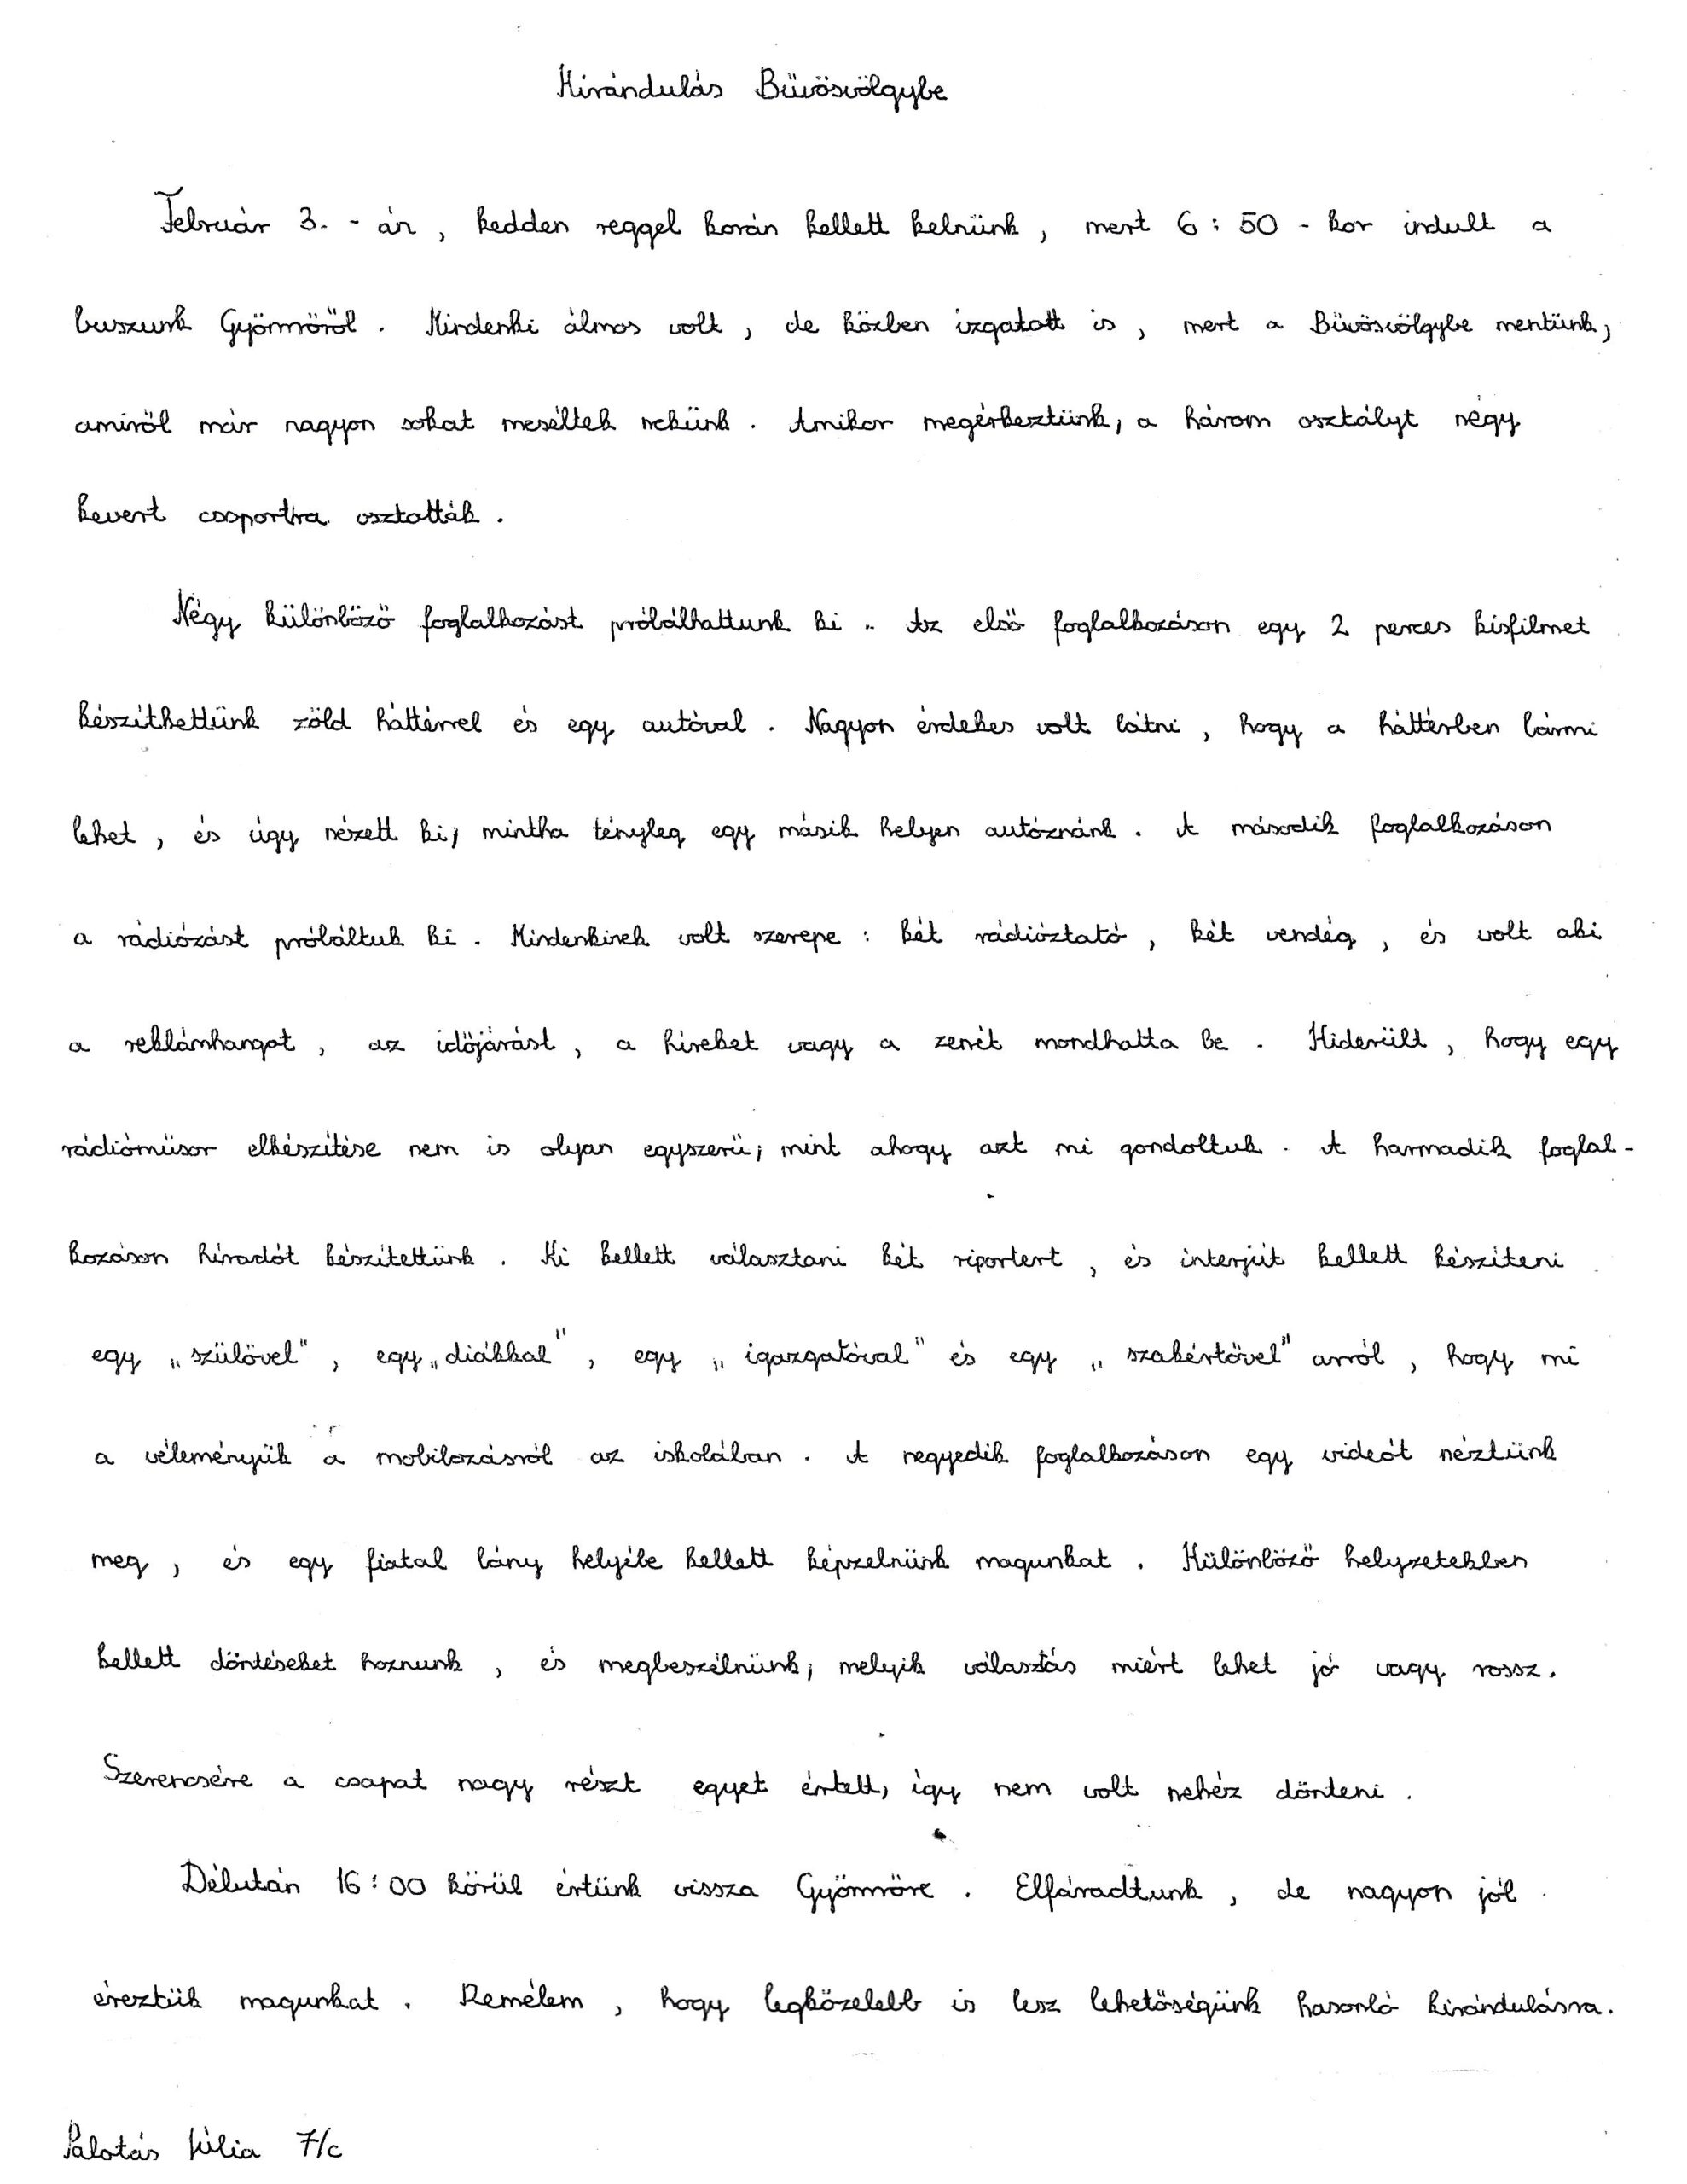 Kirándulás Bűvösvölgybe
Február 3. - án, kedden reggel korán kellett kelnünk, mert 6:50 - kor indult a
buszunk Gyömrőről. Mindenki álmos volt, de közben izgatott is, mert a Bűvösvölgybe mentünk,
amiről már nagyon sokat meséltek nekünk. Amikor megérkeztünk, a három osztályt négy
kevert csoportra osztották.
Négy különböző foglalkozást próbálhattunk ki.. Az első foglalkozáson egy 2 perces kisfilmet
készíthettünk zöld háttérrel és egy autóval. Nagyon érdekes volt látni, hogy a háttérben bármi
lehet, és úgy nézett ki, mintha tényleg egy másik helyen autóznánk. A második foglalkozáson
a rádiózást próbáltuk ki. Mindenkinek volt szerepe: két rádióztató, két vendég, és volt aki
a reklámhangot, az időjárást, a híreket vagy a zenét mondhatta be. Kiderült, hogy egy
rádióműsor elkészítése nem is olyan egyszerű, mint ahogy azt mi gondoltuk. A harmadik foglal-
kozáson híradót készítettünk. Ki kellett választani két riportert, és interjút kellett készíteni
egy „szülővel", egy „diákkal", egy „igazgatóval" és egy „szakértővel" arról, hogy mi
a véleményük a mobilozásról az iskolában. A negyedik foglalkozáson egy videót néztünk
meg, és egy fiatal lány helyébe kellett képzelnünk magunkat. Különböző helyzetekben
kellett döntéseket hoznunk, és megbeszélnünk, melyik választás miért lehet jó vagy rossz.
Szerencsére a csapat nagy részt egyet értett, így nem volt nehéz dönteni.
Délután 16:00 körül értünk vissza Gyömrőre. Elfáradtunk, de nagyon jól
éreztük magunkat. Remélem, hogy legközelebb is lesz lehetőségünk hasonló kirándulásra.
Palotás Júlia 7/c